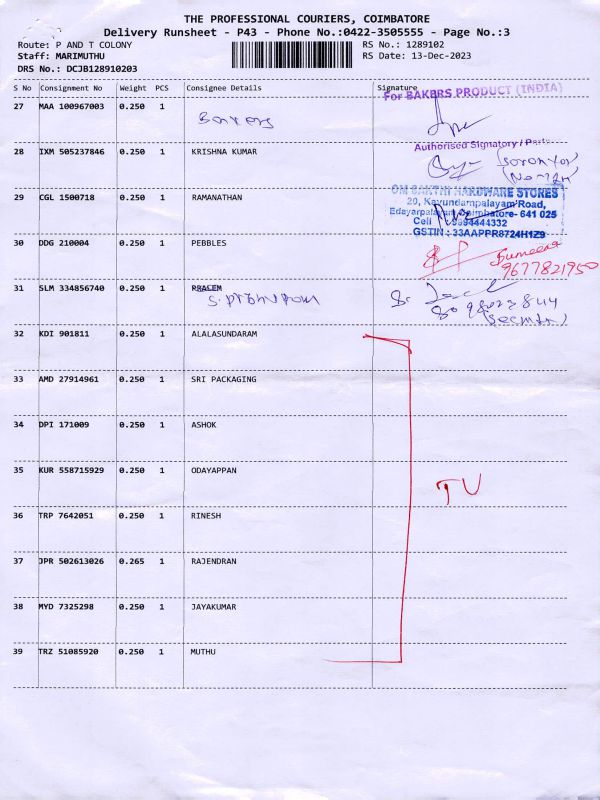 THE PROFESSIONAL COURIERS, COIMBATORE
Delivery Runsheet - P43 - Phone No.:0422-3505555 - Page No.:3
Route: P AND T COLONY
RS No.: 1289102
Staff: MARIMUTHU
RS Date: 13-Dec-2023
DRS No.: DCJB128910203
S No Consignment No Weight PCS Consignee Details Signature
For BAKERS PRODUCT (INDIA)
27 MAA 100967003 0.250 1
Bakers
Authorised Signatory / Partner
28 IXM 505237846 0.250 1 KRISHNA KUMAR
29 CGL 1500718 0.250 1 RAMANATHAN
OM SAKTHI HARDWARE STORES
20, Kavundampalayam Road,
Edayarpalayam, Coimbatore- 641 025
Cell : 9994444332
GSTIN : 33AAPPR8724H1Z9
30 DDG 210004 0.250 1 PEBBLES
Sumeena
9677821950
31 SLM 334856740 0.250 1
32 KDI 901811 0.250 1 ALALASUNDARAM
33 AMD 27914961 0.250 1 SRI PACKAGING
34 DPI 171009 0.250 1 ASHOK
35 KUR 558715929 0.250 1 ODAYAPPAN
TU
36 TRP 7642051 0.250 1 RINESH
37 JPR 502613026 0.265 1 RAJENDRAN
38 MYD 7325298 0.250 1 JAYAKUMAR
39 TRZ 51085920 0.250 1 MUTHU